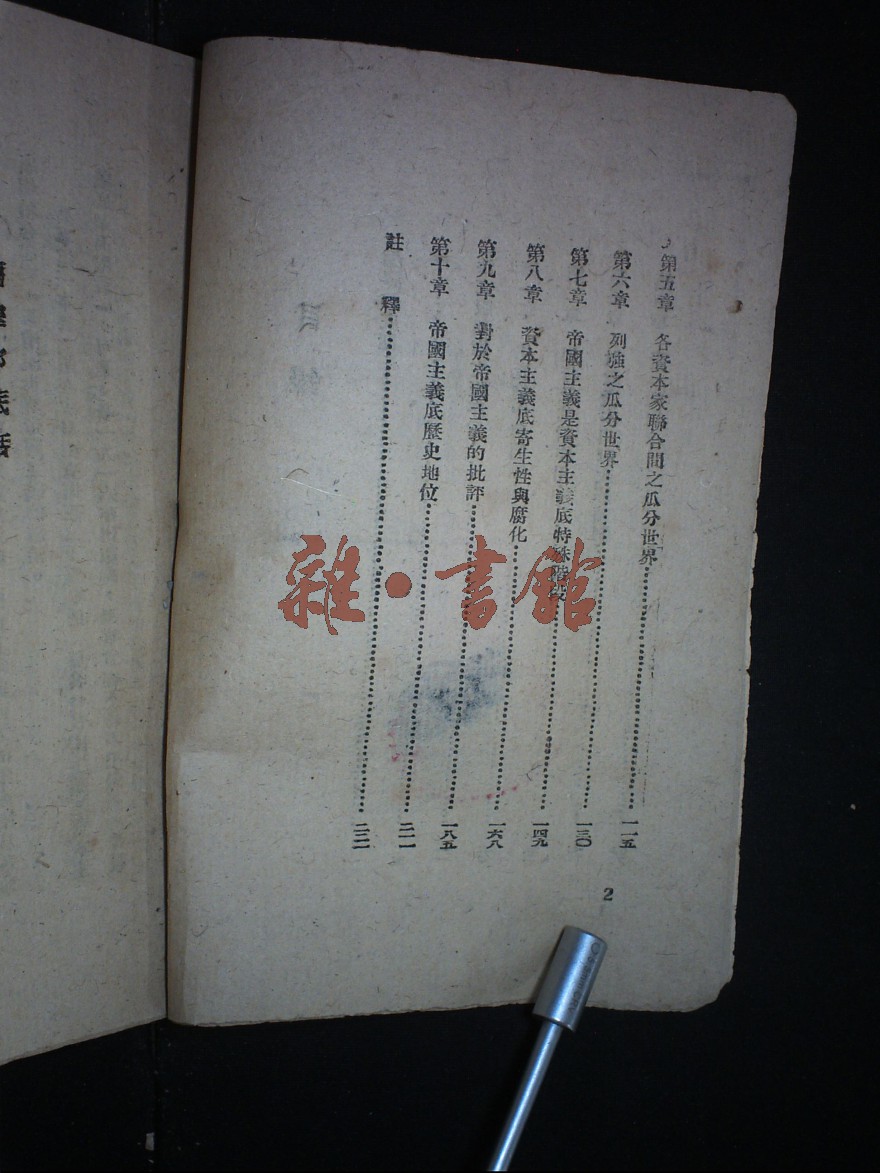 第五章 各資本家聯合間之瓜分世界……一一五
第六章 列強之瓜分世界……一三〇
第七章 帝國主義是資本主義底特殊階段……一四九
第八章 資本主義底寄生性與腐化……一六八
第九章 對於帝國主義的批評……一八五
第十章 帝國主義底歷史地位……二一一
註 釋……
2
雜·書館